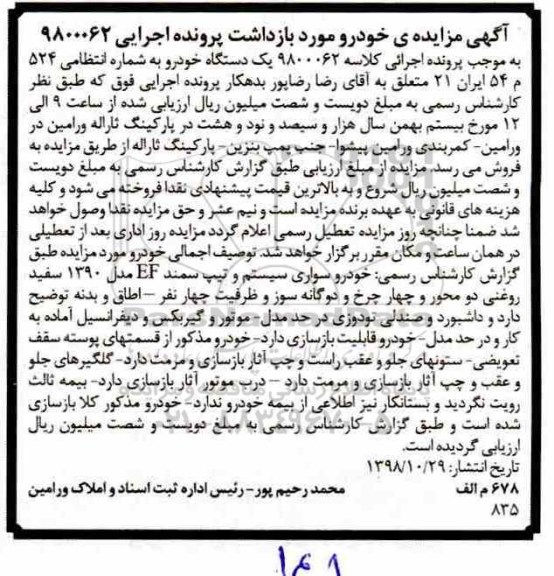 آگهی مزایده ی خودرو مورد بازداشت پرونده اجرایی ۹۸۰۰۰۶۲
به موجب پرونده اجرائی کلاسه ۹۸۰۰۰۶۲ یک دستگاه خودرو به شماره انتظامی ۵۲۴
م ۵۴ ایران ۲۱ متعلق به آقای رضا رضاپور بدهکار پرونده اجرایی فوق که طبق نظر
کارشناس رسمی به مبلغ دویست و شصت میلیون ریال ارزیابی شده از ساعت ۹ الی
۱۲ مورخ بیستم بهمن سال هزار و سیصد و نود و هشت در پارکینگ ثاراله ورامین در
ورامین- کمربندی ورامین پیشوا- جنب پمپ بنزین- پارکینگ ثاراله از طریق مزایده به
فروش می رسد. مزایده از مبلغ ارزیابی طبق گزارش کارشناس رسمی به مبلغ دویست
و شصت میلیون ریال شروع و به بالاترین قیمت پیشنهادی نقدا فروخته می شود و کلیه
هزینه های قانونی به عهده برنده مزایده است و نیم عشر و حق مزایده نقدا وصول خواهد
شد ضمنا چنانچه روز مزایده تعطیل رسمی اعلام گردد مزایده روز اداری بعد از تعطیلی
در همان ساعت و مکان مقرر برگزار خواهد شد. توصیف اجمالی خودرو مورد مزایده طبق
گزارش کارشناس رسمی: خودرو سواری سیستم و تیپ سمند EF مدل ۱۳۹۰ سفید
روغنی دو محور و چهار چرخ و دوگانه سوز و ظرفیت چهار نفر – اطاق و بدنه توضیح
دارد و داشبورد و صندلی تودوزی در حد مدل- موتور و گیربکس و دیفرانسیل آماده به
کار و در حد مدل- خودرو قابلیت بازسازی دارد- خودرو مذکور از قسمتهای پوسته سقف
تعویضی- ستونهای جلو و عقب راست و چپ آثار بازسازی و مرمت دارد- گلگیرهای جلو
و عقب و چپ آثار بازسازی و مرمت دارد – درب موتور آثار بازسازی دارد- بیمه ثالث
رویت نگردید و بستانکار نیز اطلاعی از بیمه خودرو ندارد- خودرو مذکور کلا بازسازی
شده است و طبق گزارش کارشناس رسمی به مبلغ دویست و شصت میلیون ریال
ارزیابی گردیده است.
تاریخ انتشار: ۱۳۹۸/۱۰/۲۹
۶۷۸ م الف محمد رحیم پور- رئیس اداره ثبت اسناد و املاک ورامین
۸۳۵